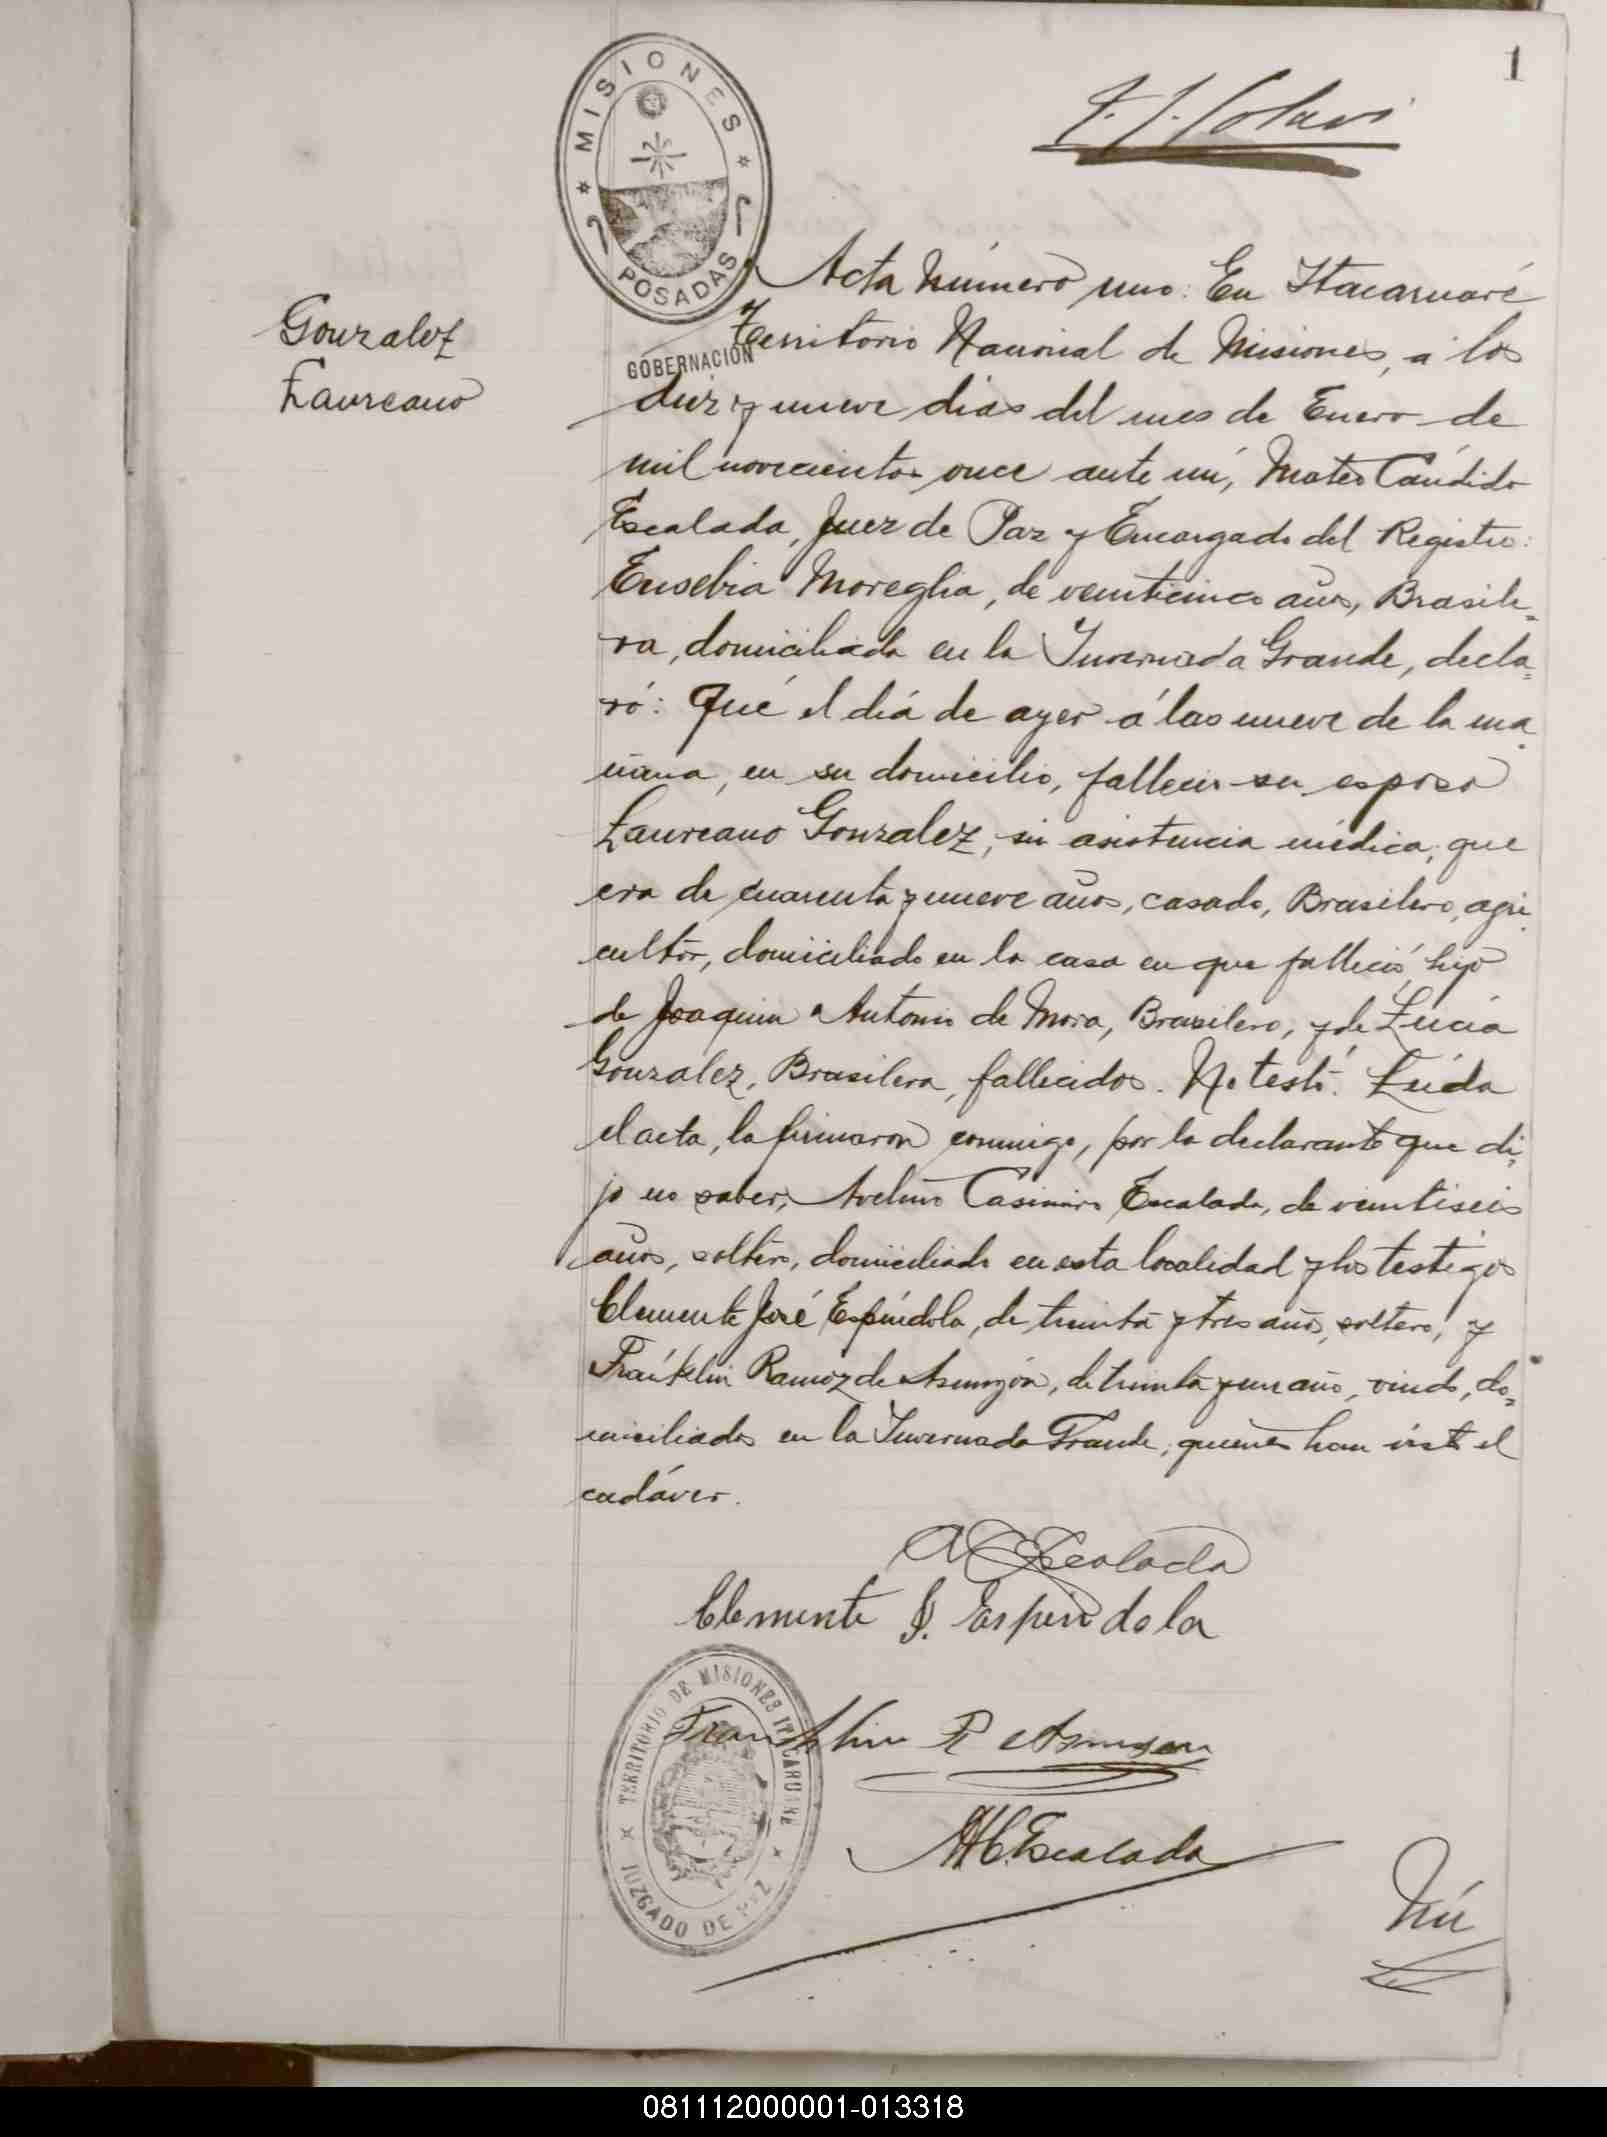 1
MISIONES
POSADAS
GOBERNACIÓN
Gonzalez
Laureano
Acta Número uno: En Itacaruaré
Territorio Nacional de Misiones, a los
diez y nueve dias del mes de Enero de
mil novecientos once ante mí, Mateo Cándido
Escalada, Juez de Paz y Encargado del Registro:
Eusebia Moreglia, de veinticinco años, Brasile=
ra, domiciliada en la Invernada Grande, decla=
ró: Qué el día de ayer á las nueve de la ma
ñana, en su domicilio, falleció su esposo
Laureano Gonzalez, sin asistencia médica; que
era de cuarenta y nueve años, casado, Brasilero, agri
cultor, domiciliado en la casa en que falleció, hijo
de Joaquin Antonio de Mora, Brasilero, y de Lucia
Gonzalez, Brasilera, fallecidos. No testó. Leída
el acta, la firmaron conmigo, por la declarante que di=
jo no saber, Avelino Casimiro Escalada, de veintiseis
años, soltero, domiciliado en esta localidad y los testigos
Clemente José Espíndola, de treinta y tres años, soltero, y
Franklin Ramoz de Asumzón, de treinta y un año, viudo, do=
miciliados en la Invernada Grande, quienes han visto el
cadáver.
A C Escalada
Clemente J. Espindola
Franklin R Asumzon
M C. Escalada
TERRITORIO DE MISIONES ITACARUARE
JUZGADO DE PAZ
081112000001-013318